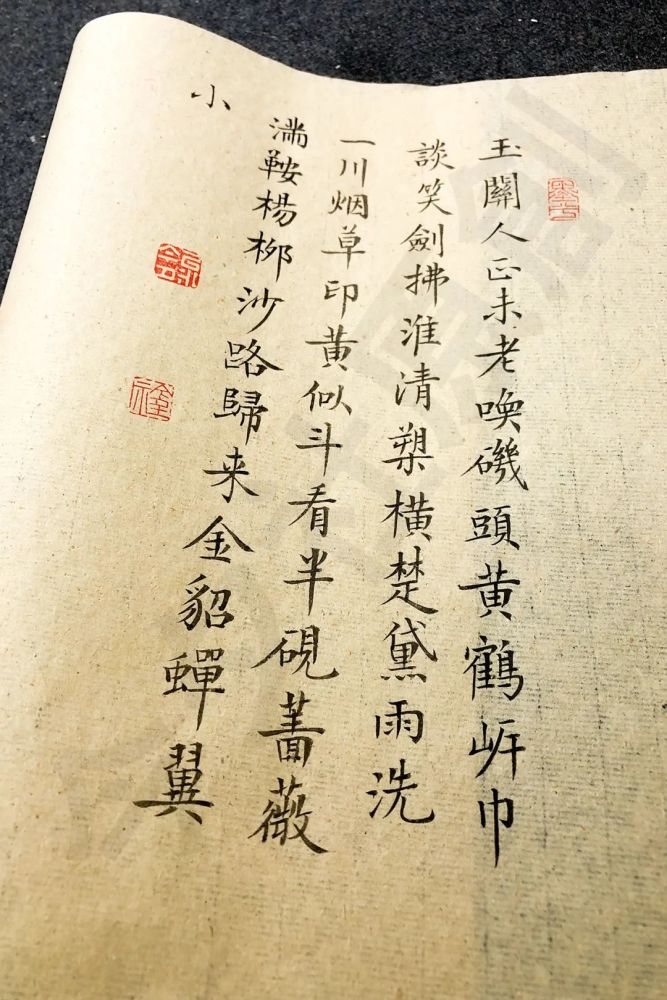 玉關人正未老喚磯頭黄鶴岸巾
談笑劍拂淮清槊橫楚黛雨洗
一川烟草印黄似斗看半硯薔薇
滿鞍楊柳沙路歸来金貂蟬翼
小